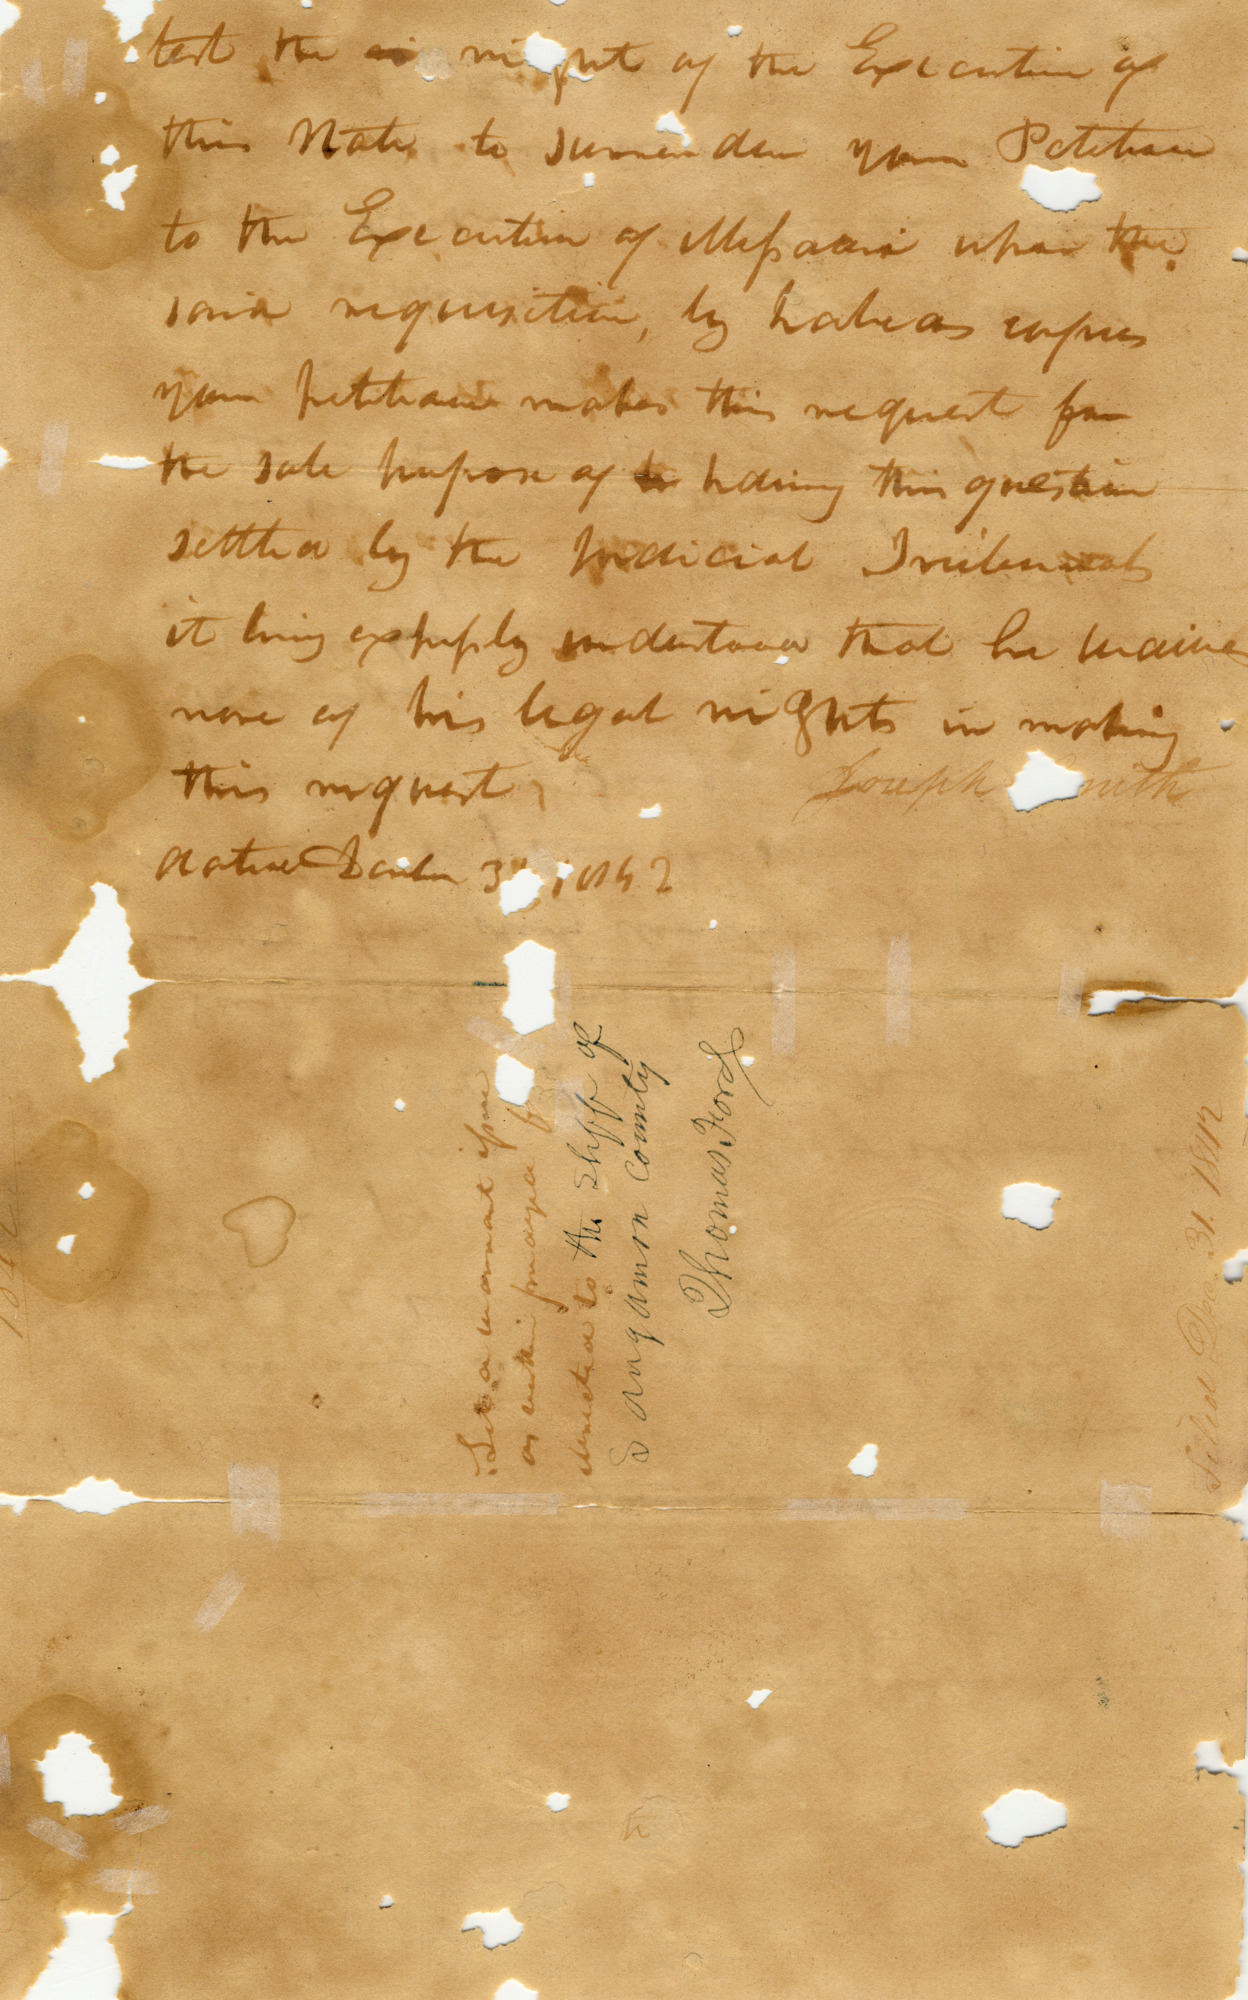 test the right of the Executive of
this State to surrender your Petitioner
to the Executive of Missouri upon the
said requisition, by habeas corpus
your petitioner makes this request for
the sole purpose of having this question
settled by the Judicial Tribunals
it being expressly understood that he waives
none of his legal rights in making
this request
Joseph Smith
dated 31 1842
Let a warrant issue
as within prayed for
directed to the Shff of
Sangamon County
Thomas Ford
Filed Dec 31. 1842